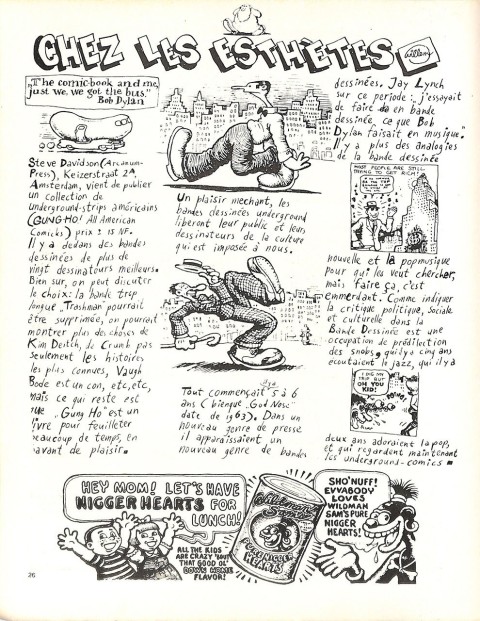 CHEZ LES ESTHÈTES
Willem
"The comic-book and me,
just we, we got the bus."
Bob Dylan
Steve Davidson (Arcanum-
Press), Keizerstraat 2A,
Amsterdam, vient de publier
un collection de
underground-strips américains
(GUNG-HO! All American
Comicks) prix: 15 NF.
Il y a dedans des bandes
dessinées de plus de
vingt dessinateurs meilleurs.
Bien sur, on peut discuter
le choix: la bande trop
longue "Trashman" pourrait
être supprimée, on pourrait
montrer plus des choses de
Kim Deitch, de Crumb pas
seulement les histoires
les plus connues, Vaugh
Bode est un con, etc, etc,
mais ce qui reste est
"Gung Ho" est un
livre pour feuilleter
beaucoup de temps, en
avant de plaisir.
Un plaisir mechant, les
bandes dessinées underground
liberent leur public et leur
dessinateurs de la culture
qui est imposée à nous.
Tout commençait il y a 5 à 6
ans (bienque "God Nose"
date de 1963). Dans un
nouveau genre de presse
il apparaissaient un
nouveau genre de bandes
dessinées. Jay Lynch
sur ce periode: "j'essayait
de faire en bande
dessinée, ce que Bob
Dylan faisait en musique."
Il y a plus des analogies
de la bande dessinée
MOST PEOPLE ARE STILL
TRYING TO GET RICH!
nouvelle et la popmusique
pour qui les veut chercher,
mais faire ça, c'est
emmerdant. Comme indiquer
la critique politique, sociale
et culturelle dans la
Bande Dessinée est une
occupation de prédilection
des snobs, qui il y a cinq ans
ecoutaient le jazz, qui il y a
I DIG MY
TRIP BUT
OH YOU
KID!
deux ans adoraient la pop,
et qui regardent maintenant
les underground-comics.
HEY MOM! LET'S HAVE
NIGGER HEARTS FOR
LUNCH!
ALL THE KIDS
ARE CRAZY 'BOUT
THAT GOOD OL'
DOWN HOME
FLAVOR!
Wildman Sam's
PURE NIGGER
HEARTS
SHO'NUFF!
EVVABODY
LOVES
WILDMAN
SAM'S PURE
NIGGER
HEARTS!
26